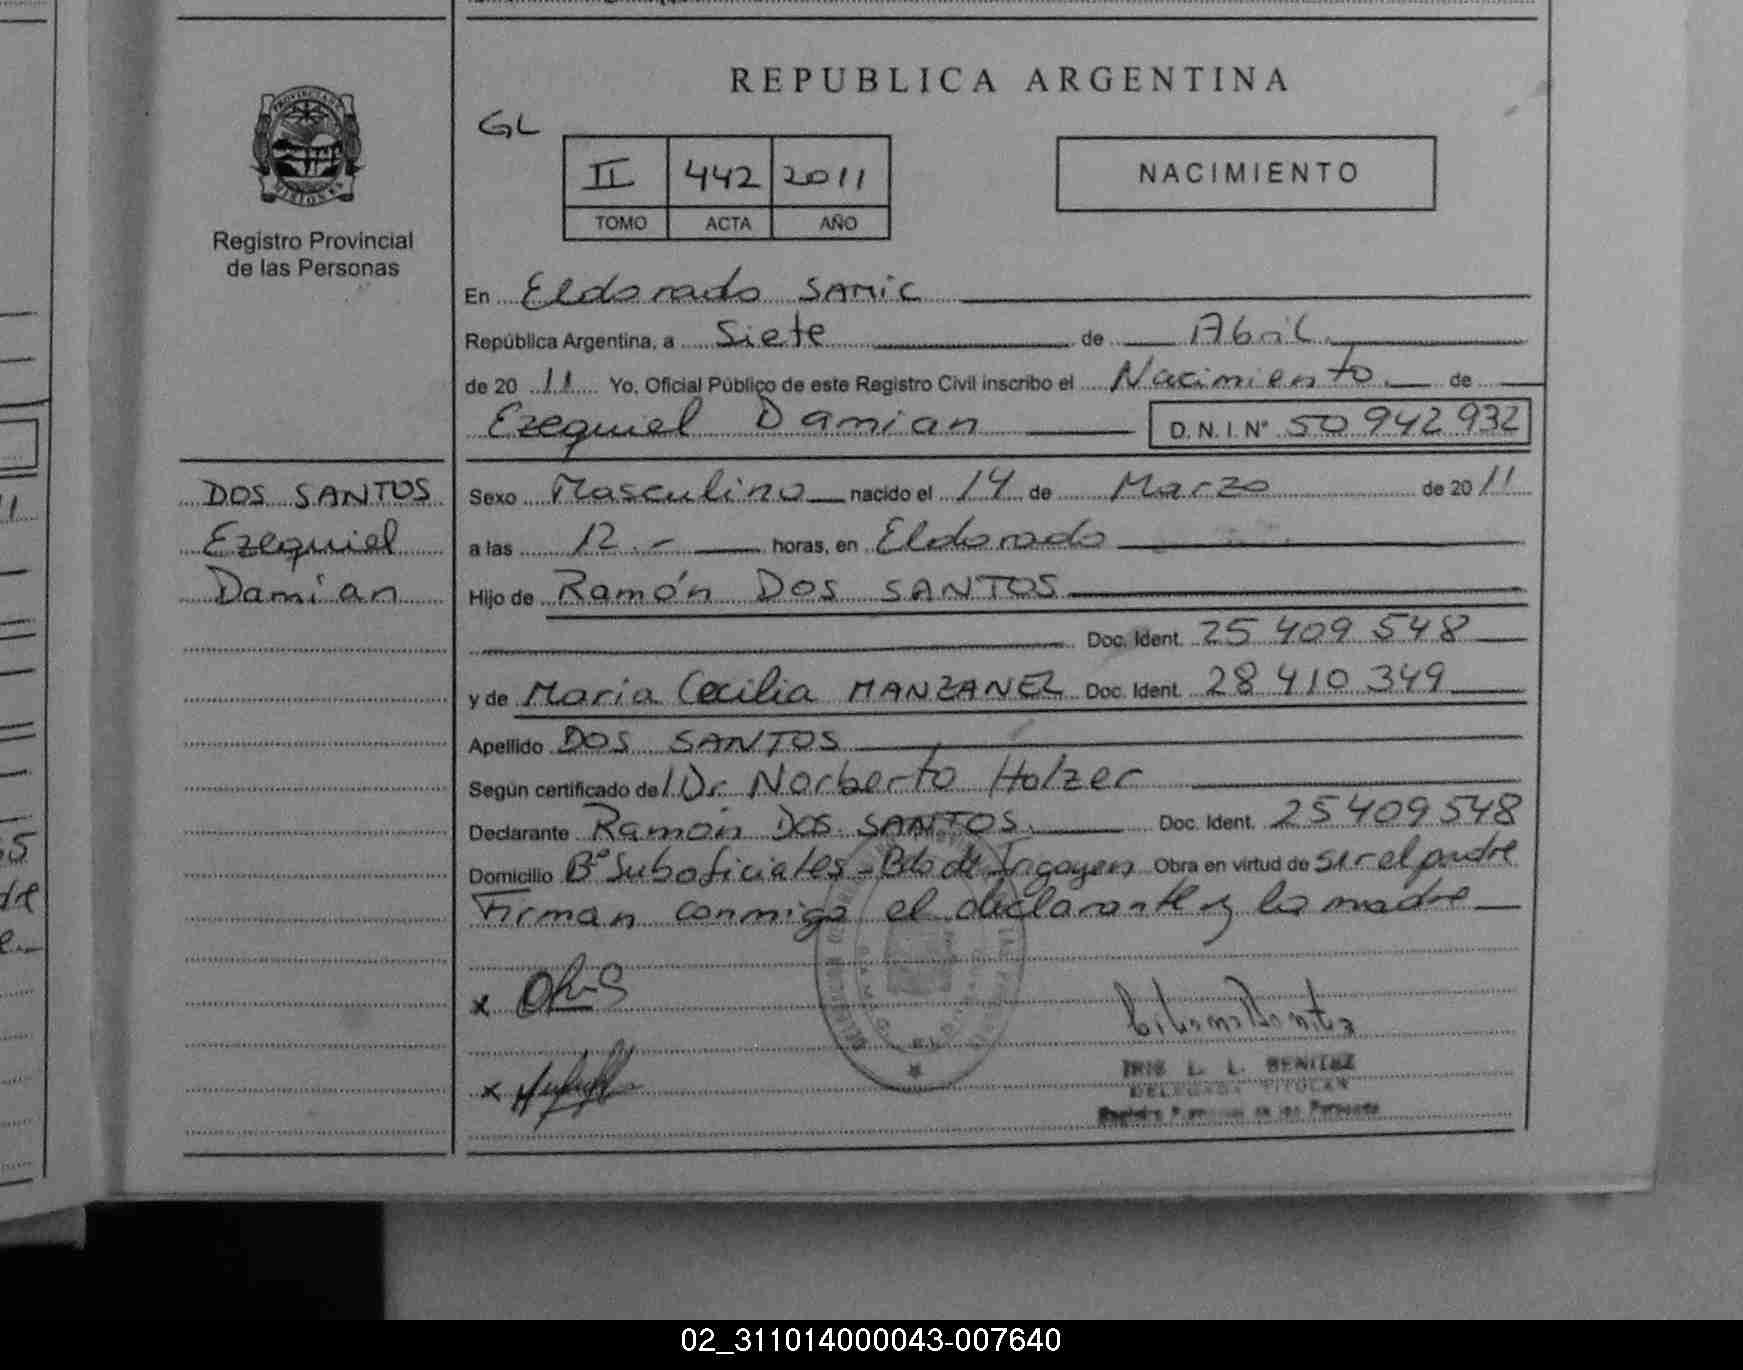 REPUBLICA ARGENTINA
GL
II 442 2011
TOMO ACTA AÑO
NACIMIENTO
PROVINCIA DE
MISIONES
Registro Provincial
de las Personas
En Eldorado SAMIC
República Argentina, a Siete de Abril
de 20 11 Yo, Oficial Público de este Registro Civil inscribo el Nacimiento de
Ezequiel Damian D.N.I.Nº 50 942 932
DOS SANTOS
Ezequiel
Damian
Sexo Masculino nacido el 14 de Marzo de 20 11
a las 12.- horas, en Eldorado
Hijo de Ramón DOS SANTOS
Doc. Ident. 25 409 548
y de Maria Cecilia MANZANEZ Doc. Ident. 28 410 349
Apellido DOS SANTOS
Según certificado del Dr. Norberto Holzer
Declarante Ramón DOS SANTOS Doc. Ident. 25409548
Domicilio Bº Suboficiales - Bdo de Irigoyen Obra en virtud de ser el padre
Firman conmigo el declarante y la madre
x
x
IRIS L. L. BENITEZ
DELEGADA TITULAR
Registro Provincial de las Personas
02_311014000043-007640